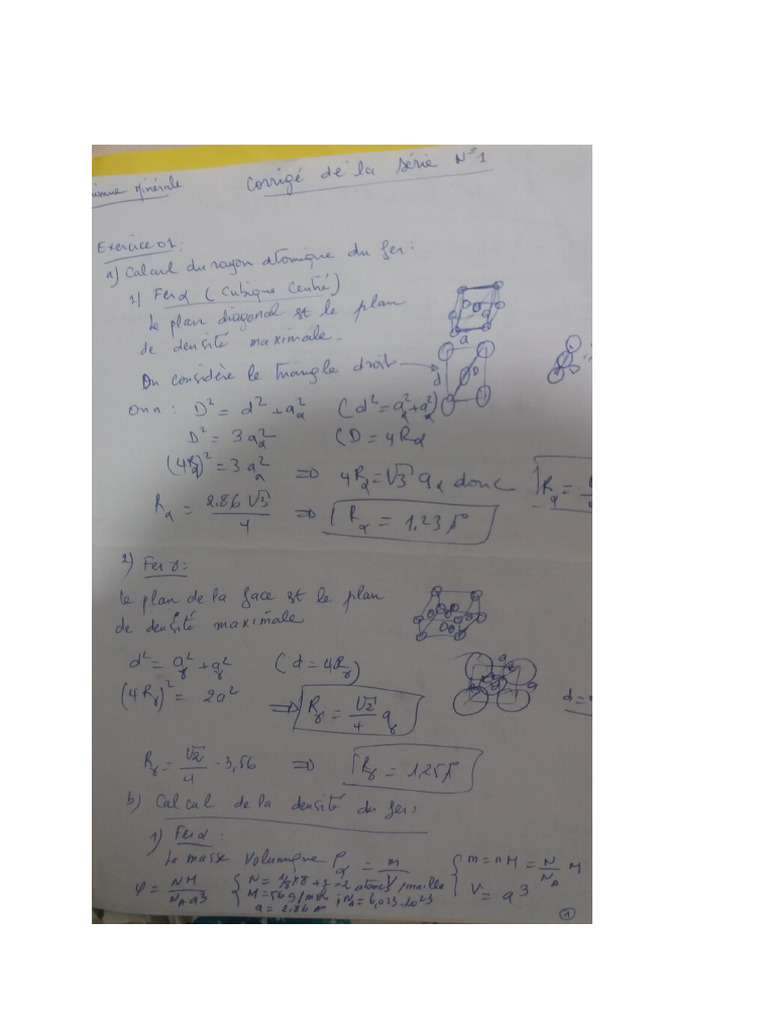 Minérale
Corrigé de la Série N°1
Exercice 01:
a) Calcul du rayon atomique du fer:
1) Fer α (Cubique Centré)
Le plan diagonal est le plan
de densité maximale.
a
On considère le triangle droit
d D
On a: D² = d² + aα² (d² = aα² + aα²)
D² = 3aα² (D = 4Rα
(4Rα)² = 3aα² => 4Rα = √3 aα donc Rα =
Rα = 2.86√3/4 => Rα = 1,23 Å
2) Fer γ:
Le plan de la face est le plan
de densité maximale
d² = aγ² + aγ² (d = 4Rγ)
a
a
(4Rγ)² = 2a² => Rγ = √2/4 aγ
d =
Rγ = √2/4 · 3,56 => Rγ = 1,25 Å
b) Calcul de la densité du fer:
1) Fer α:
La masse volumique ρα = m/V { m = nM = N/NA M
V = a³
ρ = NM/NA a³ { N = 1/8 × 8 + 1 = 2 atomes/maille
M = 56 g/mol; NA = 6,023.10²³
a = 2.86 Å
1